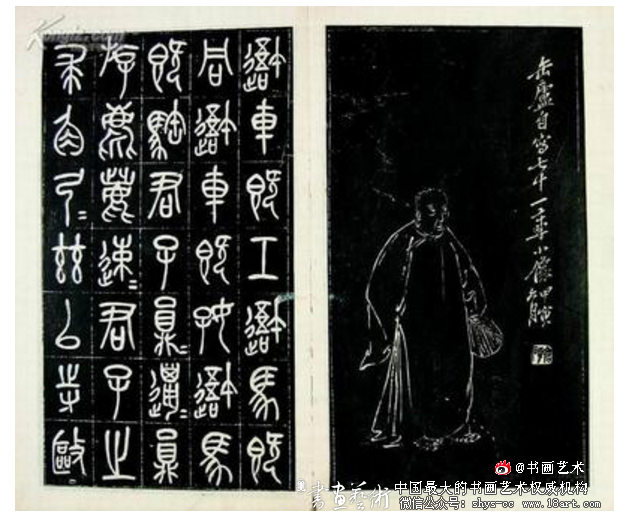 缶廬自寫七十一歲小像
吾車既工吾馬既
同吾車既好吾馬
既君子員=邋=員
斿麀鹿速=君子之
求角弓=茲以寺毆
@书画艺术
書畫藝術 中国最大的书画艺术权威机构
微信公众号：shys-cc www.18art.com